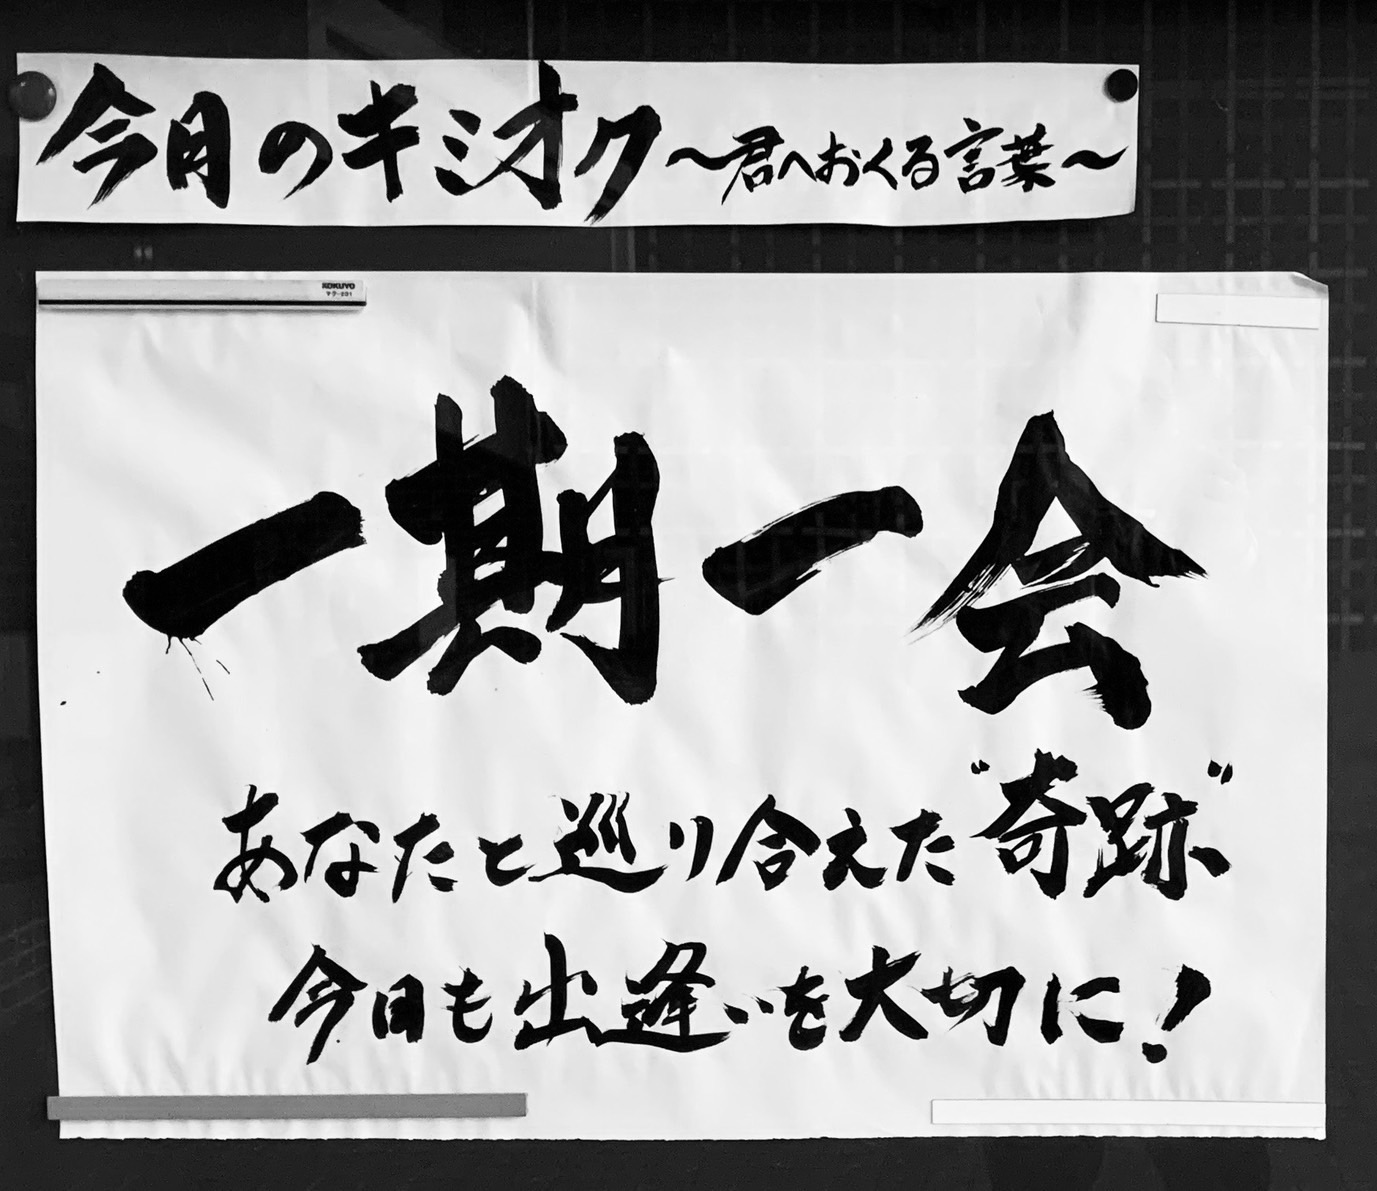 今月のキミオク〜君へおくる言葉〜
KOKUYO
マク-201
一期一会
あなたと巡り合えた"奇跡"
今日も出逢いを大切に!